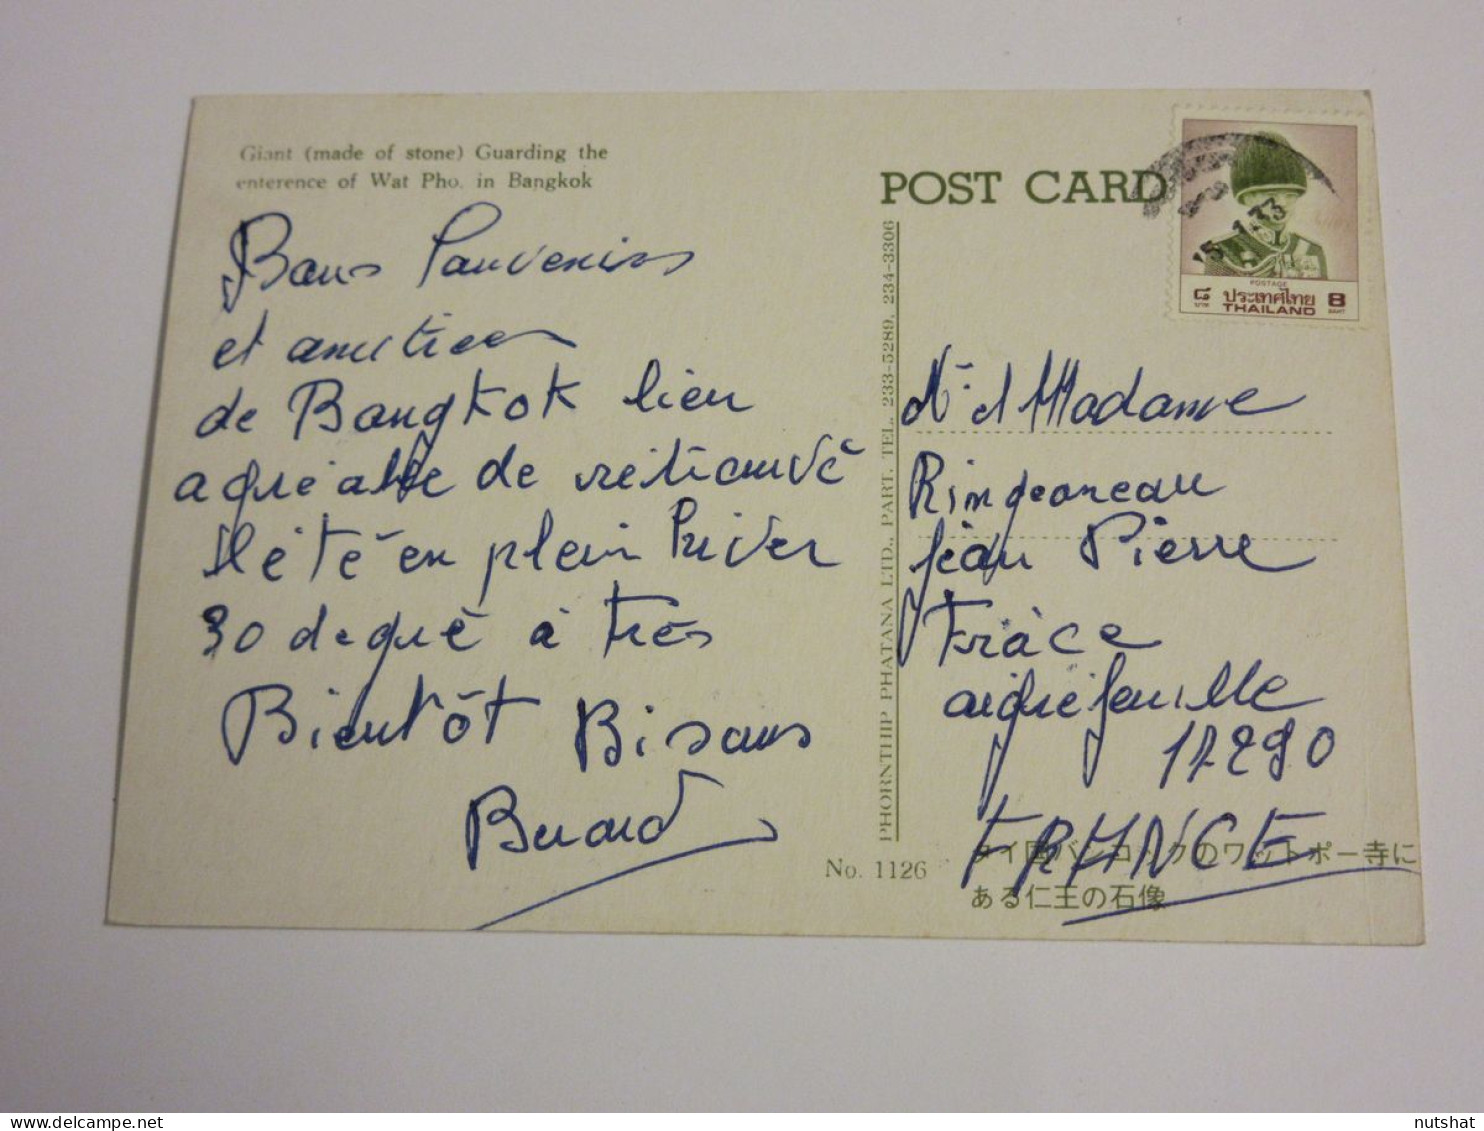 Giant (made of stone) Guarding the
enterence of Wat Pho. in Bangkok
POST CARD
Bons Souvenirs
et amitiees
de Bangkok lieu
agréable de retrouvé
l'été en plein hiver
30 degré à très
Bientôt Bisous
Berard
PHORNTHIP PHATANA LTD., PART. TEL. 233-5289, 234-3306
5. 1.33
POSTAGE
๘ ประเทศไทย 8
บาท THAILAND BAHT
Mr. et Madame
Ringeoneau
Jean Pierre
aigrefeuille
17290
FRANCE
No. 1126
タイ国バンコックのワットポー寺に
ある仁王の石像
nutshat